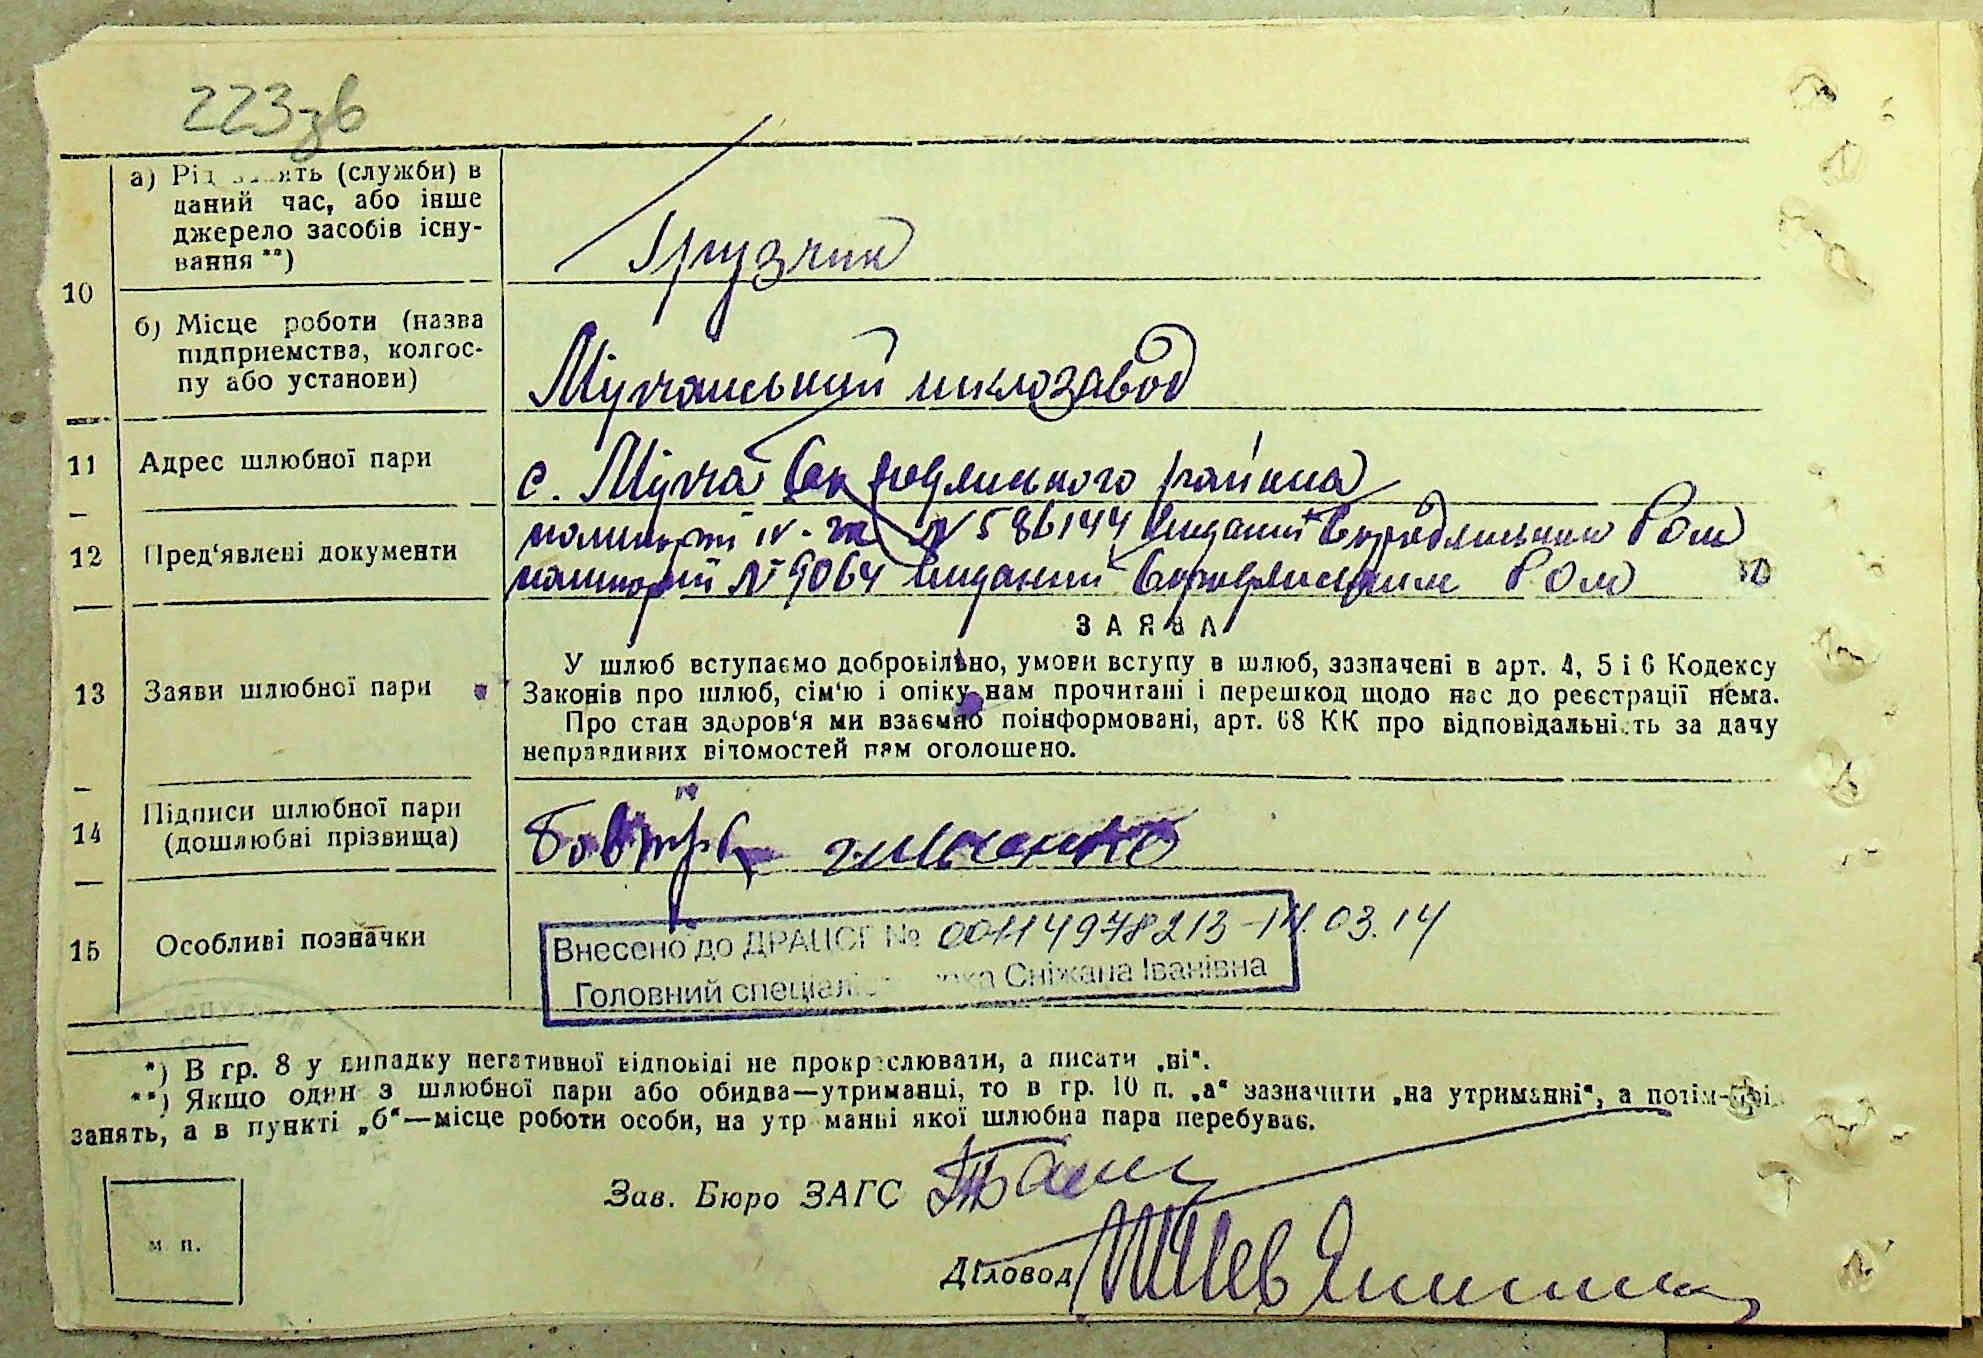 223зв
10
а) Рід занять (служби) в
даний час, або інше
джерело засобів існу-
вання **)
Грузчик
б) Місце роботи (назва
підприємства, колгос-
пу або установи)
11
Адрес шлюбної пари
12
Пред‘явлені документи
паспорт IV-
N 586144 виданий
РОМ
паспорт № 9064 виданий
РОМ
ЗАЯВА
13
Заяви шлюбної пари
У шлюб вступаємо добровільно, умови вступу в шлюб, зазначені в арт. 4, 5 і 6 Кодексу
Законів про шлюб, сім‘ю і опіку нам прочитані і перешкод щодо нас до реєстрації нема.
Про стан здоров‘я ми взаємно поінформовані, арт. 68 КК про відповідальність за дачу
неправдивих відомостей нам оголошено.
14
Підписи шлюбної пари
(дошлюбні прізвища)
15
Особливі позначки
Внесено до ДРАЦСГ № 00114978213-14.03.14
Головний спеціаліст
Сніжана Іванівна
*) В гр. 8 у випадку негативної відповіді не прокреслювати, а писати „ні“.
**) Якщо один з шлюбної пари або обидва—утриманці, то в гр. 10 п. „а“ зазначити „на утриманні“, а потім—рід
занять, а в пункті „б“—місце роботи особи, на утриманні якої шлюбна пара перебуває.
Зав. Бюро ЗАГС
Діловод
м п.